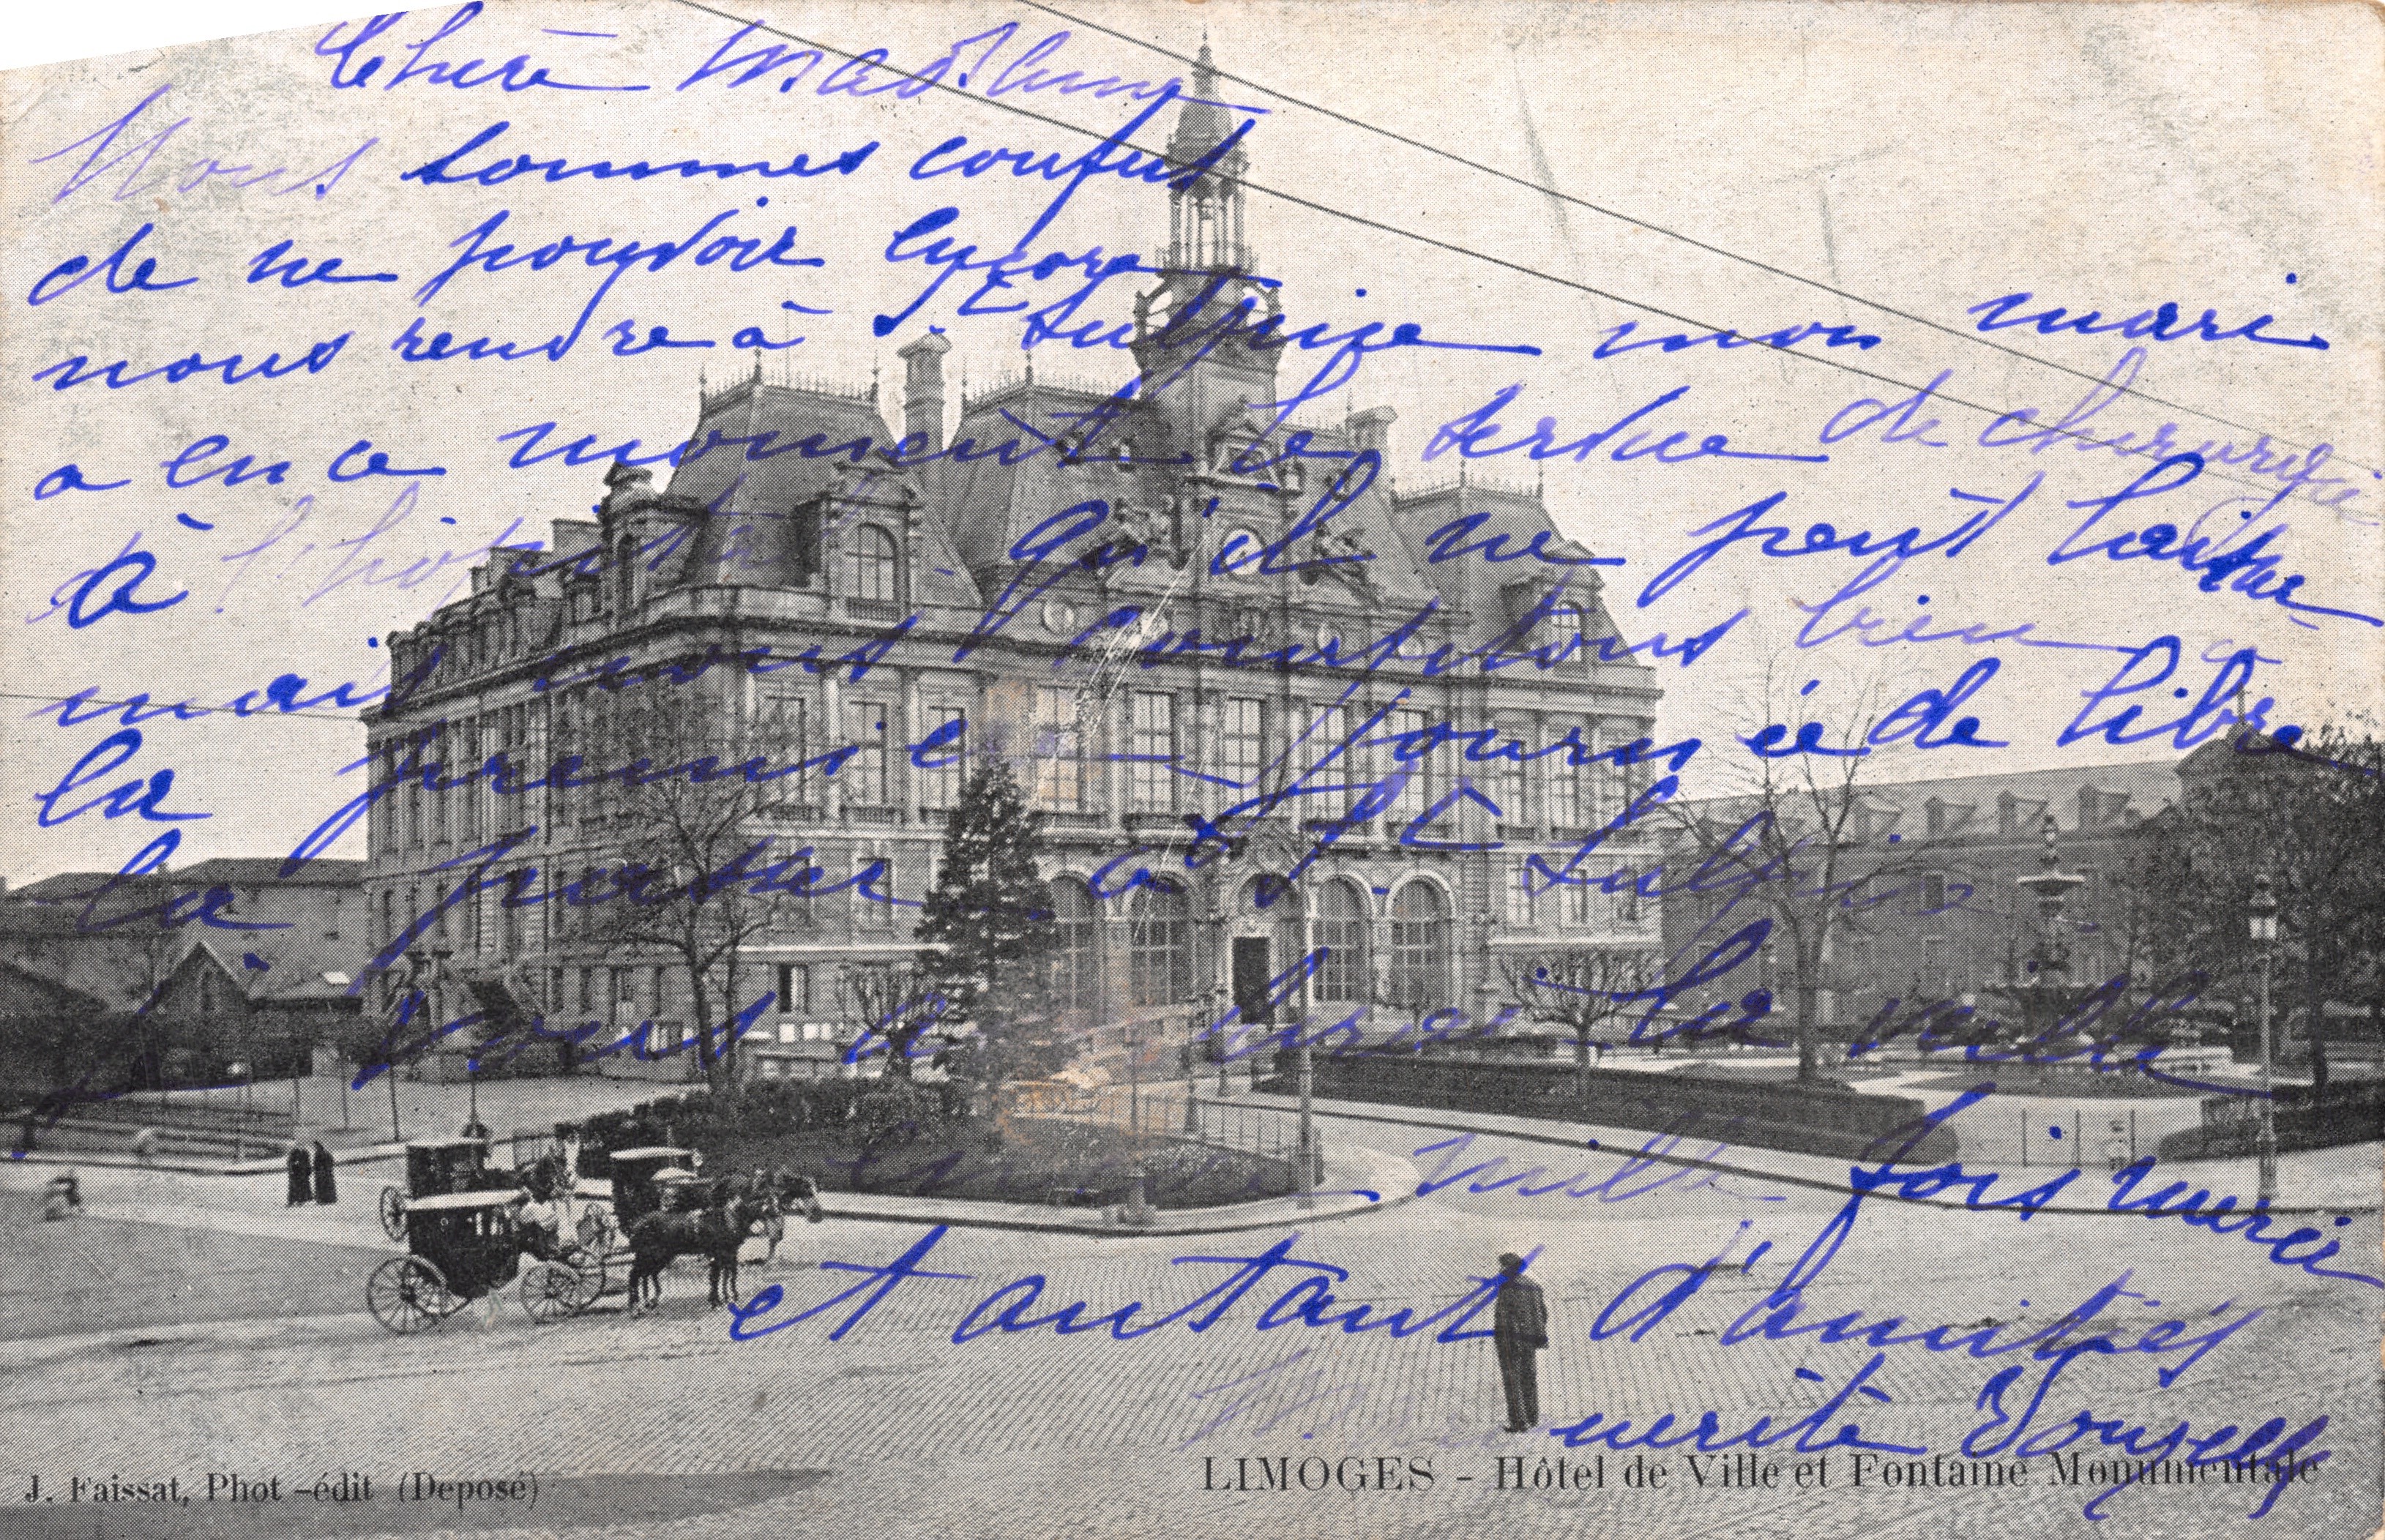 Chère Madame
Nous sommes confus
de ne pouvoir encore
nous rendre à St Sulpice mon mari
a en ce moment le service de chirurgie
à l'hôpital qu'il ne peut laisser
mais nous pensons bien
la première journée de libre
la passer à St Sulpice
je vous la veille
mille fois merci
et autant d'amitiés
J. Faissat, Phot-édit (Deposé)
LIMOGES - Hôtel de Ville et Fontaine Monumentale